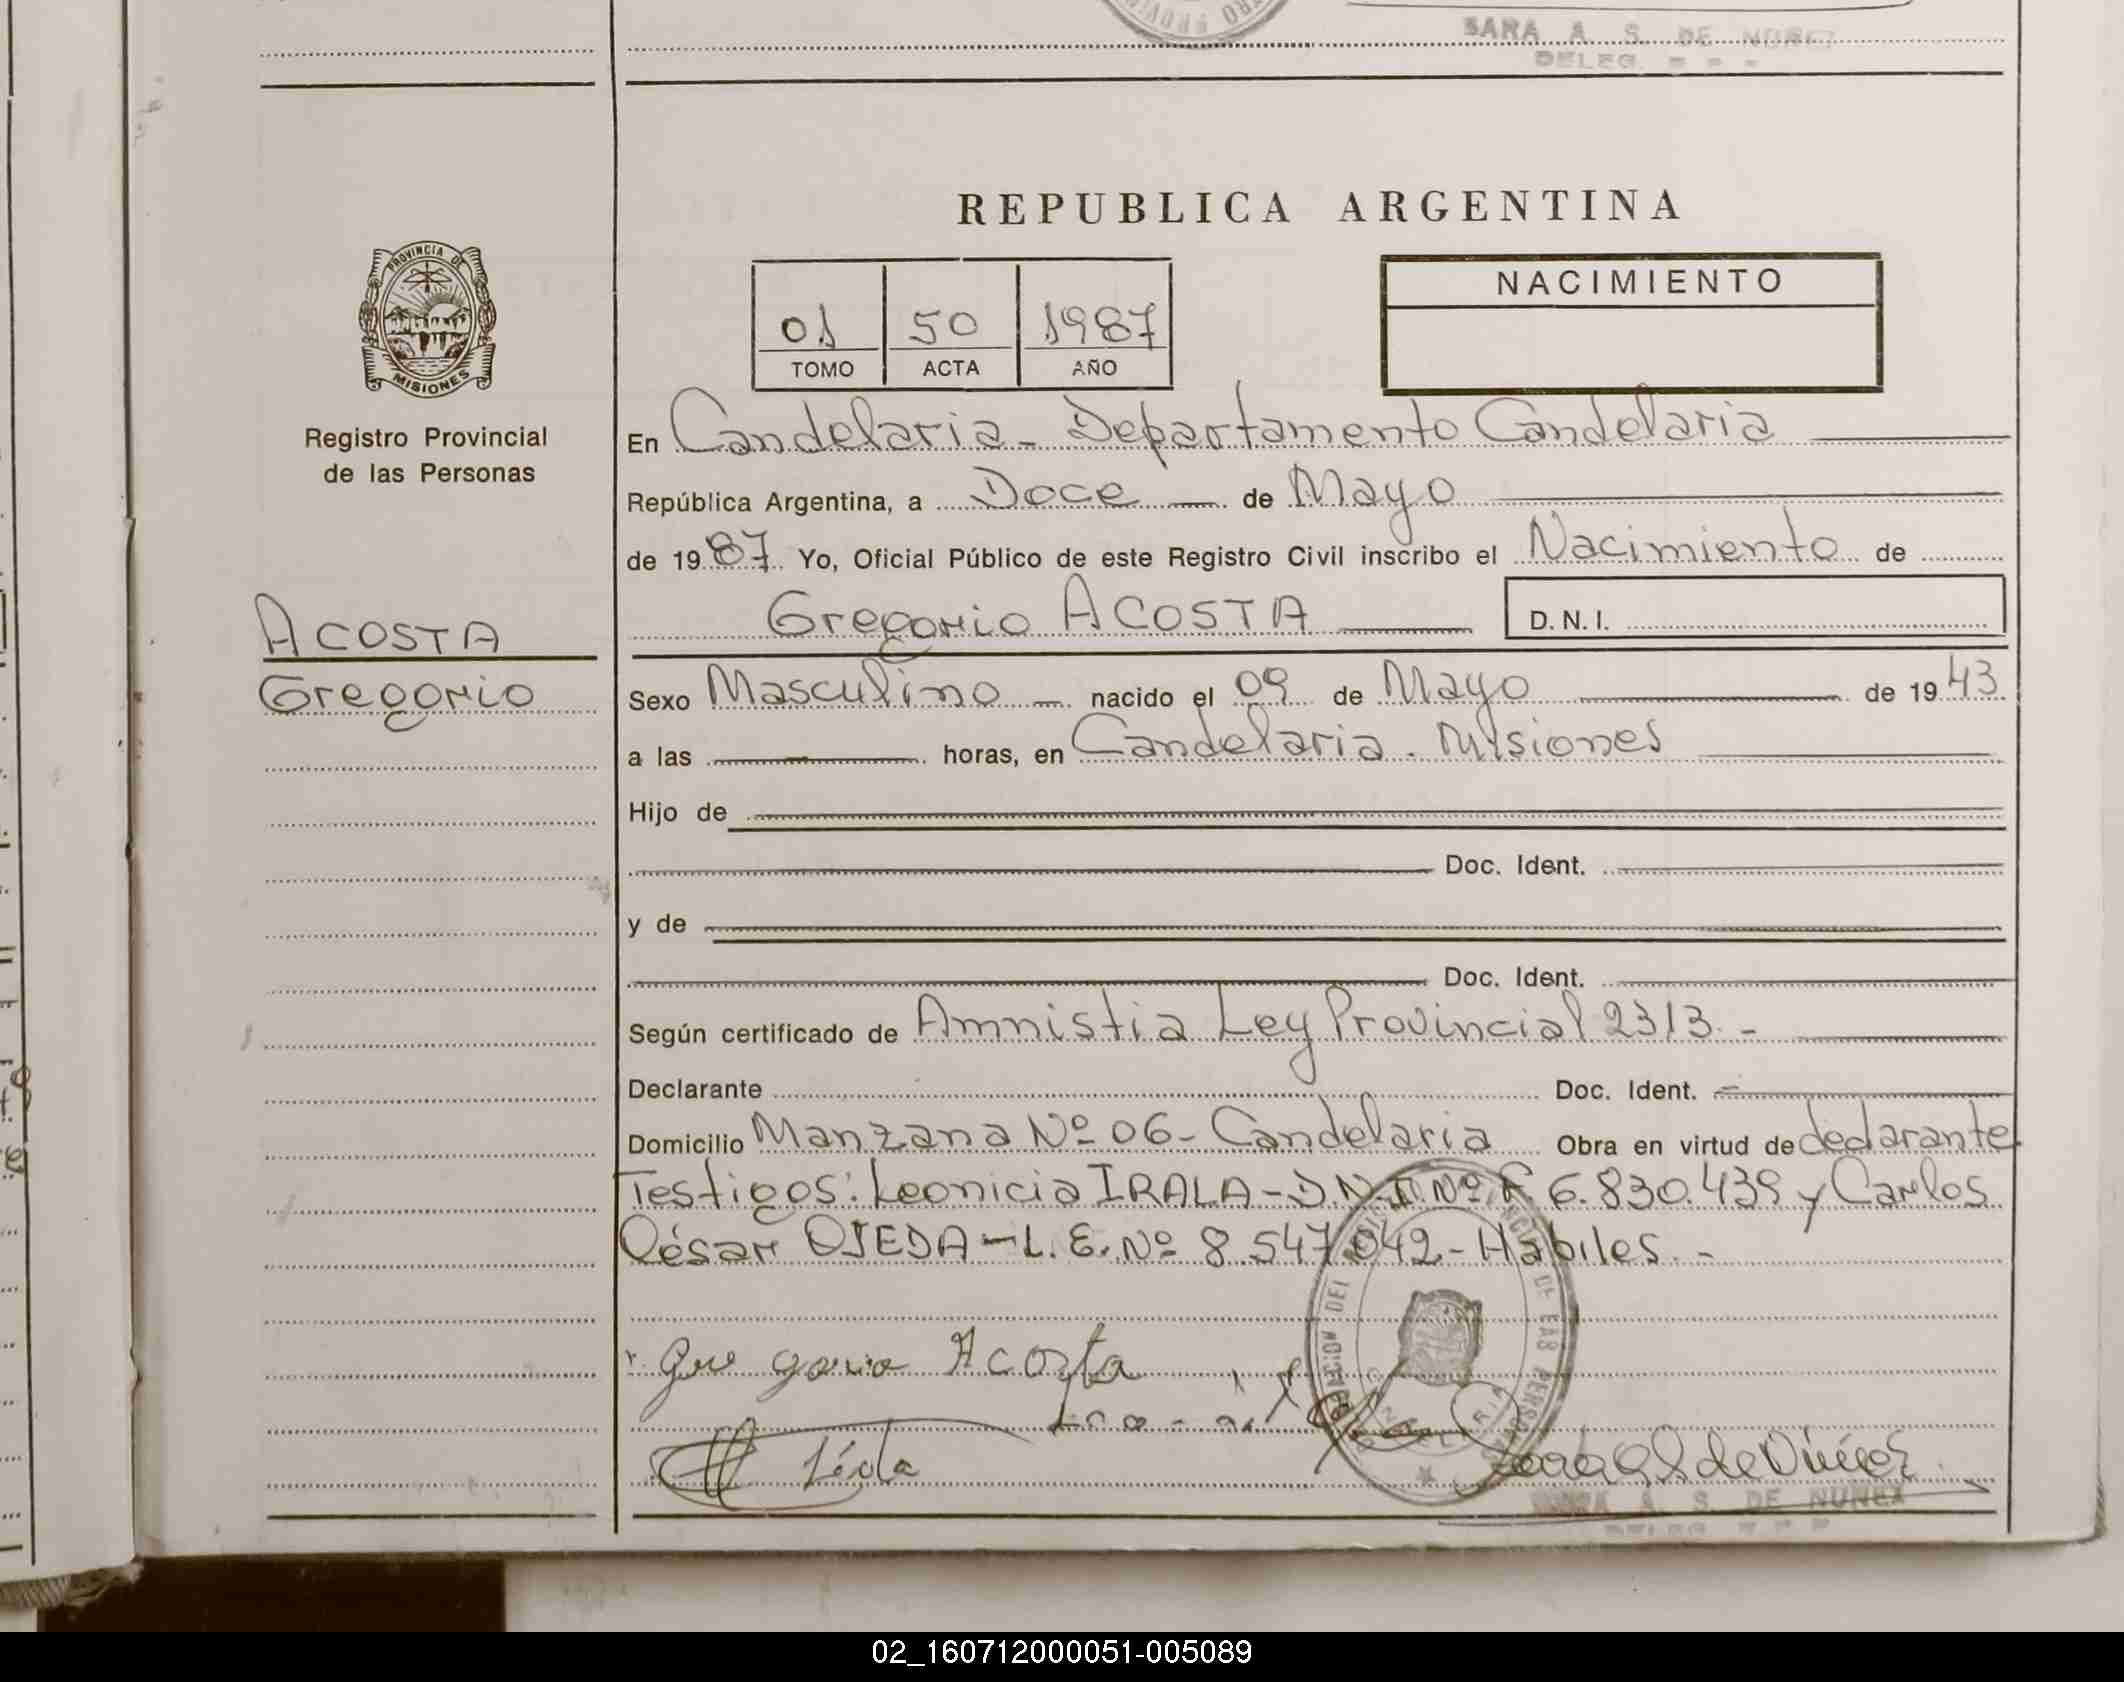 SARA A. S. DE
DELEG.
REPUBLICA ARGENTINA
PROVINCIA DE
MISIONES
Registro Provincial
de las Personas
NACIMIENTO
01 50 1987
TOMO ACTA AÑO
En Candelaria - Departamento Candelaria
República Argentina, a Doce de Mayo
de 1987 Yo, Oficial Público de este Registro Civil inscribo el Nacimiento de
Gregorio ACOSTA D.N.I.
ACOSTA
Gregorio
Sexo Masculino nacido el 09 de Mayo de 1943
a las horas, en Candelaria. Misiones
Hijo de
Doc. Ident.
y de
Doc. Ident.
Según certificado de Amnistia Ley Provincial 2313.-
Declarante Doc. Ident.
Domicilio Manzana Nº 06- Candelaria Obra en virtud de declarante
Testigos: Leonicia IRALA - D.N.I. Nº F. 6.830.439 y Carlos
César OJEDA - L.E. Nº 8.547.042 - Hábiles.-
Gregorio Acosta
SARA A. S. DE NUÑEZ
DELEG.
02_160712000051-005089